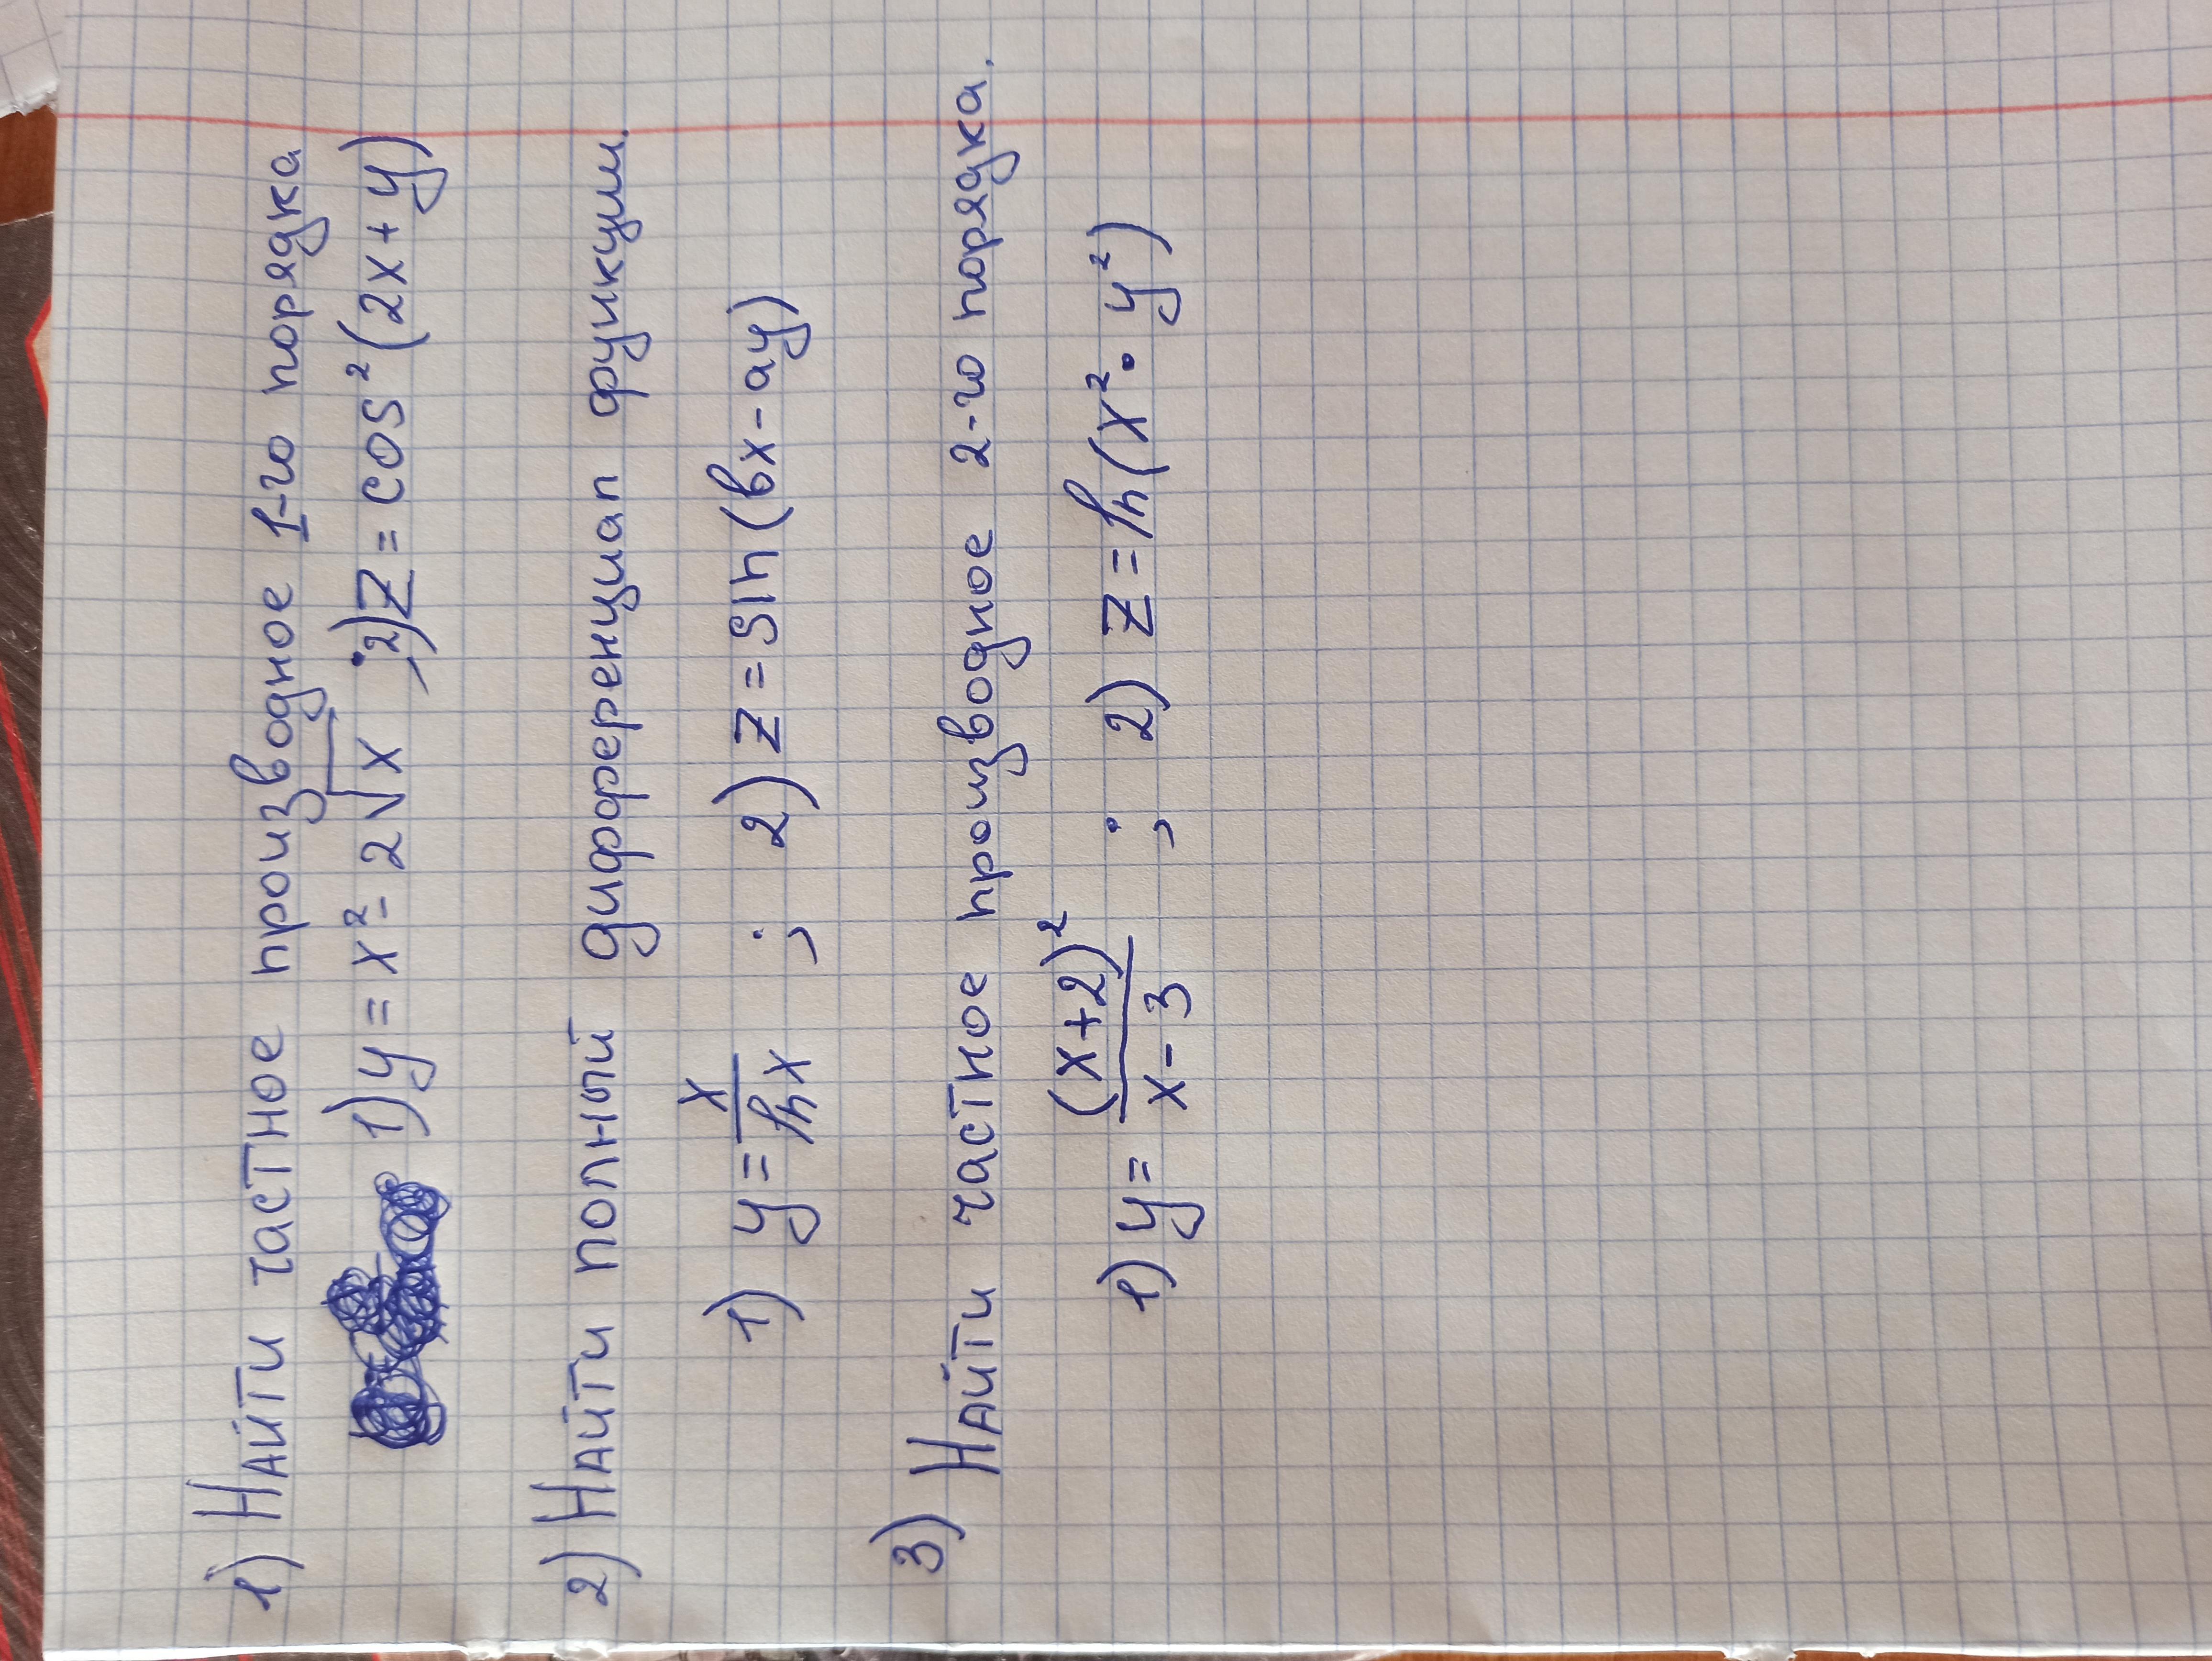 1) Найти частное производное 1-го порядка
1) y = x² - 2√x ; 2) z = cos²(2x + y)
2) Найти полный дифференциал функции.
1) y = x/ln x ; 2) z = sin(вx - ay)
3) Найти частное производное 2-го порядка.
1) y = (x+2)²/x - 3 ; 2) z = ln(x² · y²)